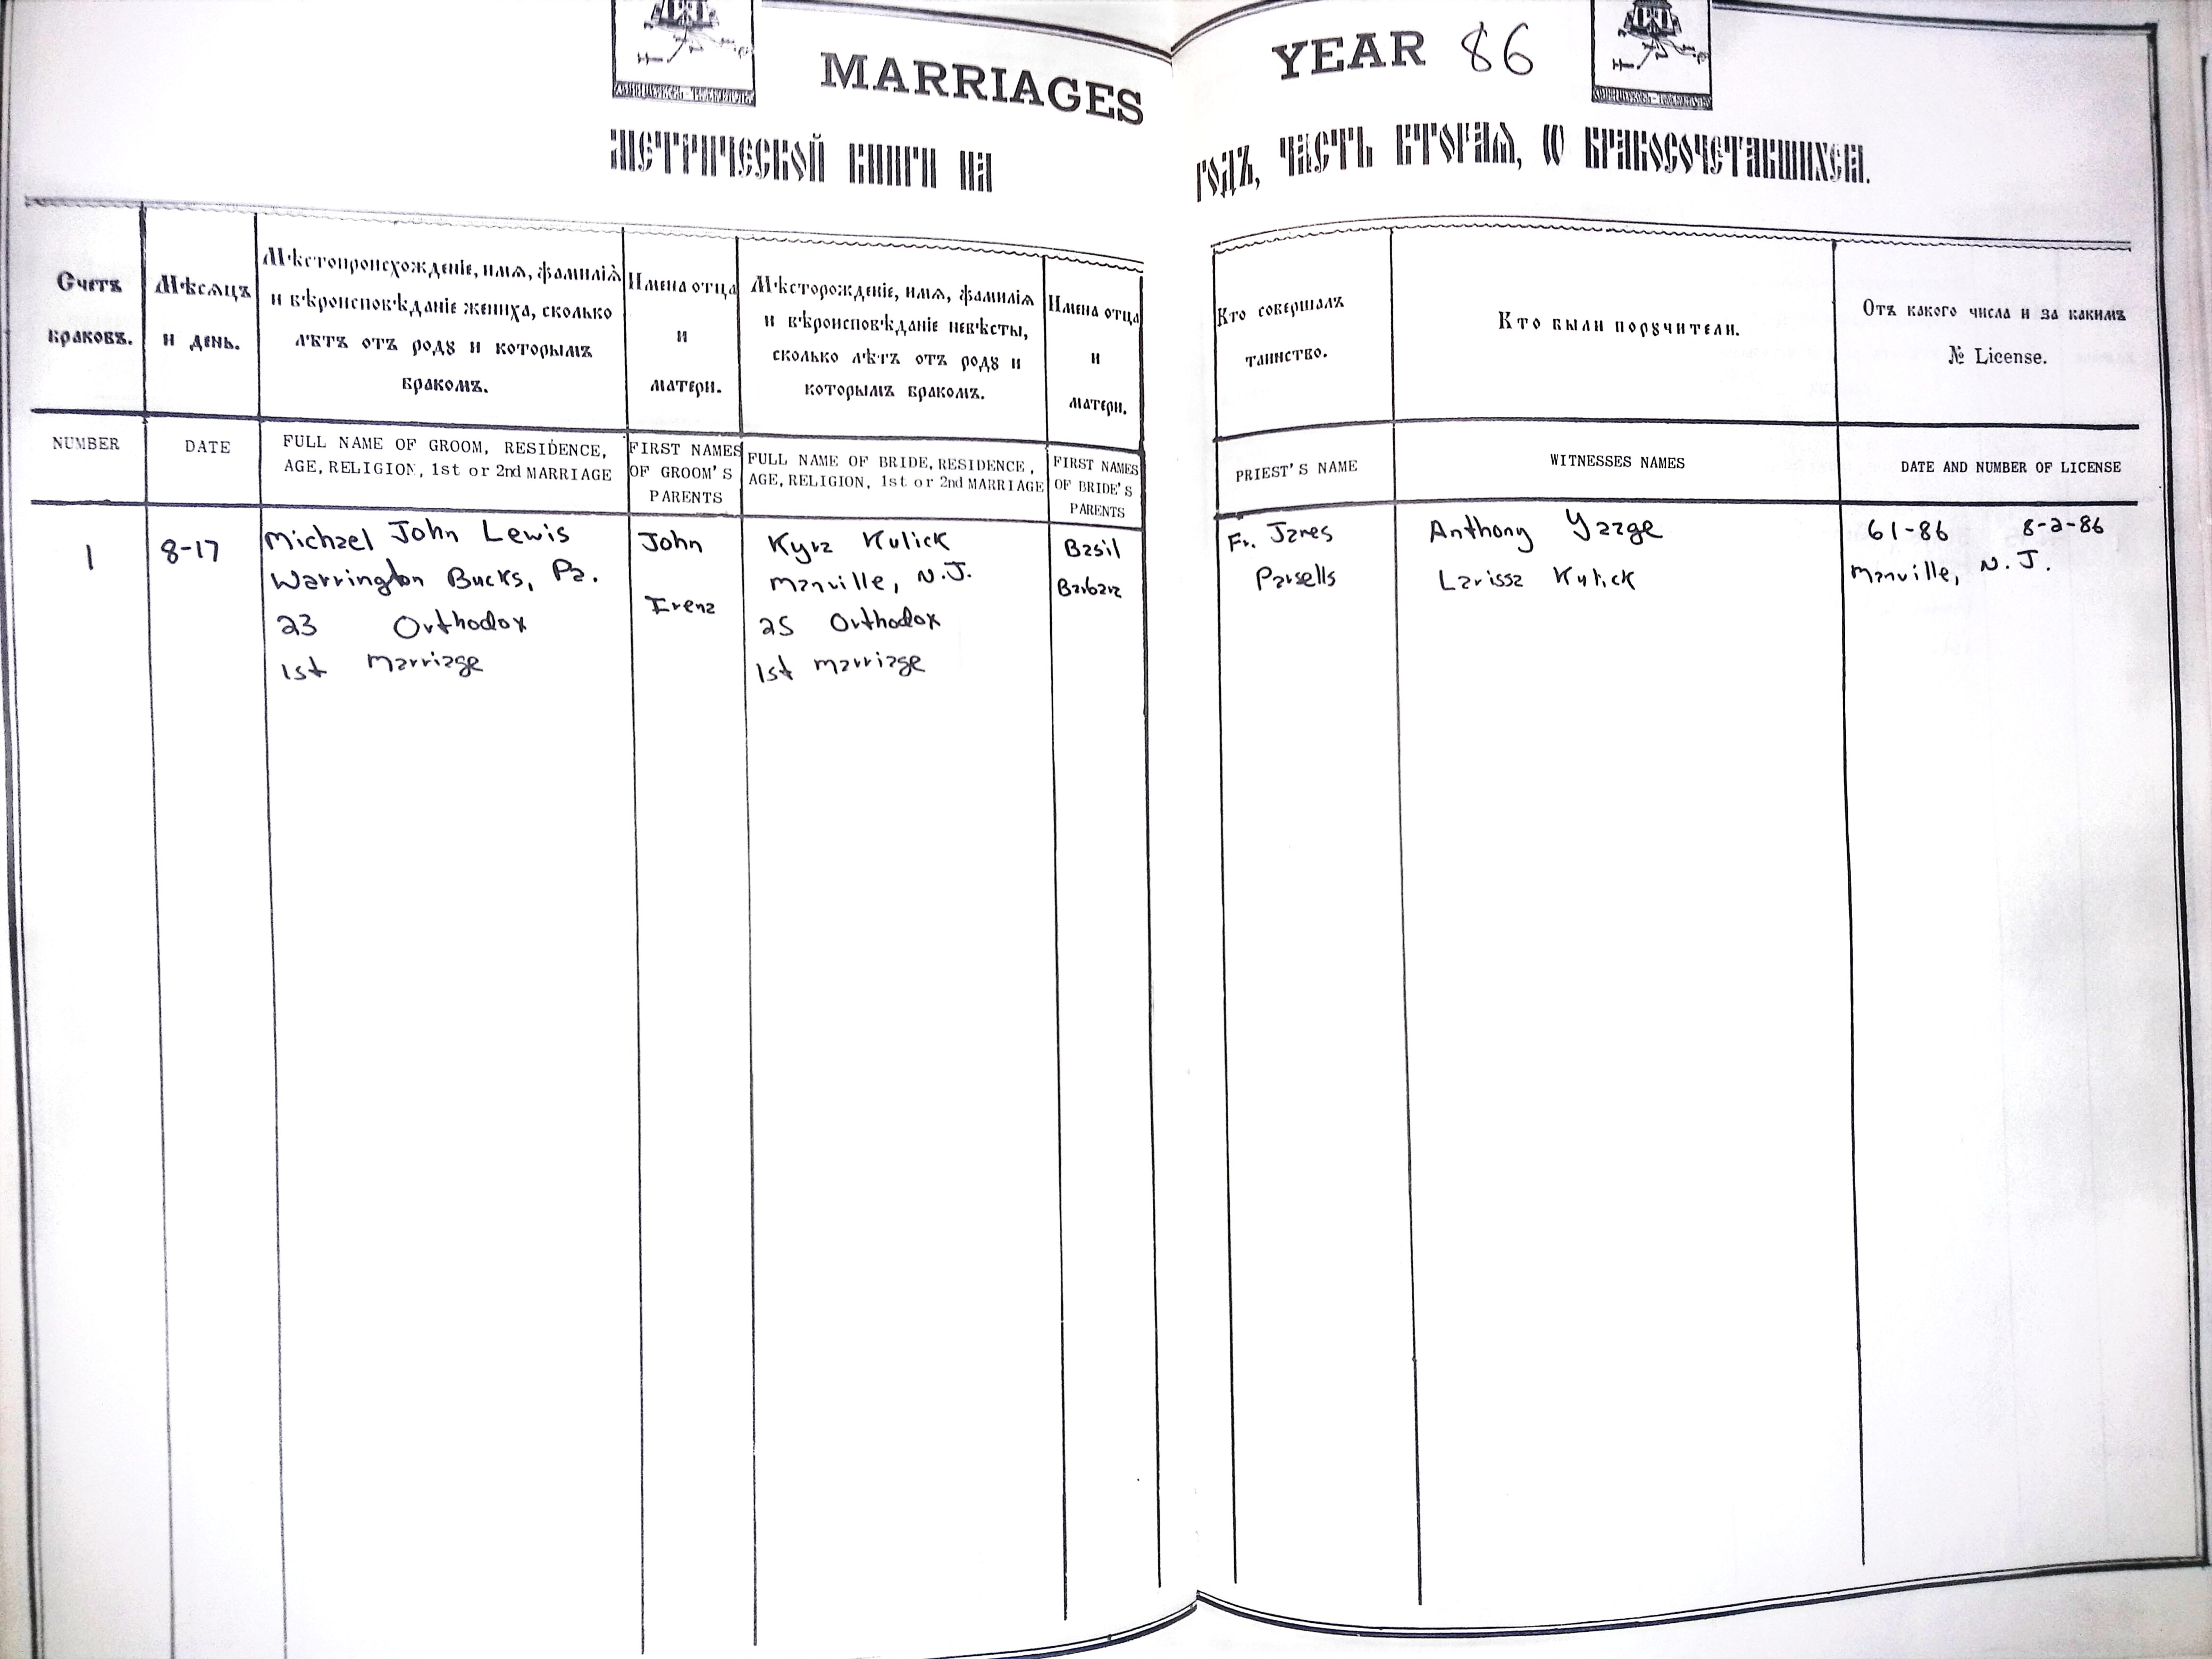 MARRIAGES
YEAR 86
МЕТРИЧЕСКОЙ КНИГИ НА
ГОДЪ, ЧАСТЬ ВТОРАЯ, Ѡ БРАКОСОЧЕТАВШИХСЯ.
Счетъ
браковъ.
Мѣсяцъ
и день.
Мѣстопроисхожденіе, имя, фамилія
и вѣроисповѣданіе жениха, сколько
лѣтъ отъ роду и которымъ
бракомъ.
Имена отца
и
матери.
Мѣсторожденіе, имя, фамилія
и вѣроисповѣданіе невѣсты,
сколько лѣтъ отъ роду и
которымъ бракомъ.
Имена отца
и
матери.
Кто совершалъ
таинство.
Кто были поручители.
Отъ какого числа и за какимъ
№ License.
NUMBER
DATE
FULL NAME OF GROOM, RESIDENCE,
AGE, RELIGION, 1st or 2nd MARRIAGE
FIRST NAMES
OF GROOM'S
PARENTS
FULL NAME OF BRIDE, RESIDENCE,
AGE, RELIGION, 1st or 2nd MARRIAGE
FIRST NAMES
OF BRIDE'S
PARENTS
PRIEST'S NAME
WITNESSES NAMES
DATE AND NUMBER OF LICENSE
1
8-17
Michael John Lewis
Warrington Bucks, Pa.
23 Orthodox
1st marriage
John
Irena
Kyra Kulick
Manville, N.J.
25 Orthodox
1st marriage
Basil
Barbara
Fr. James
Parsells
Anthony Yazge
Larissa Kulick
61-86 8-2-86
Manville, N.J.